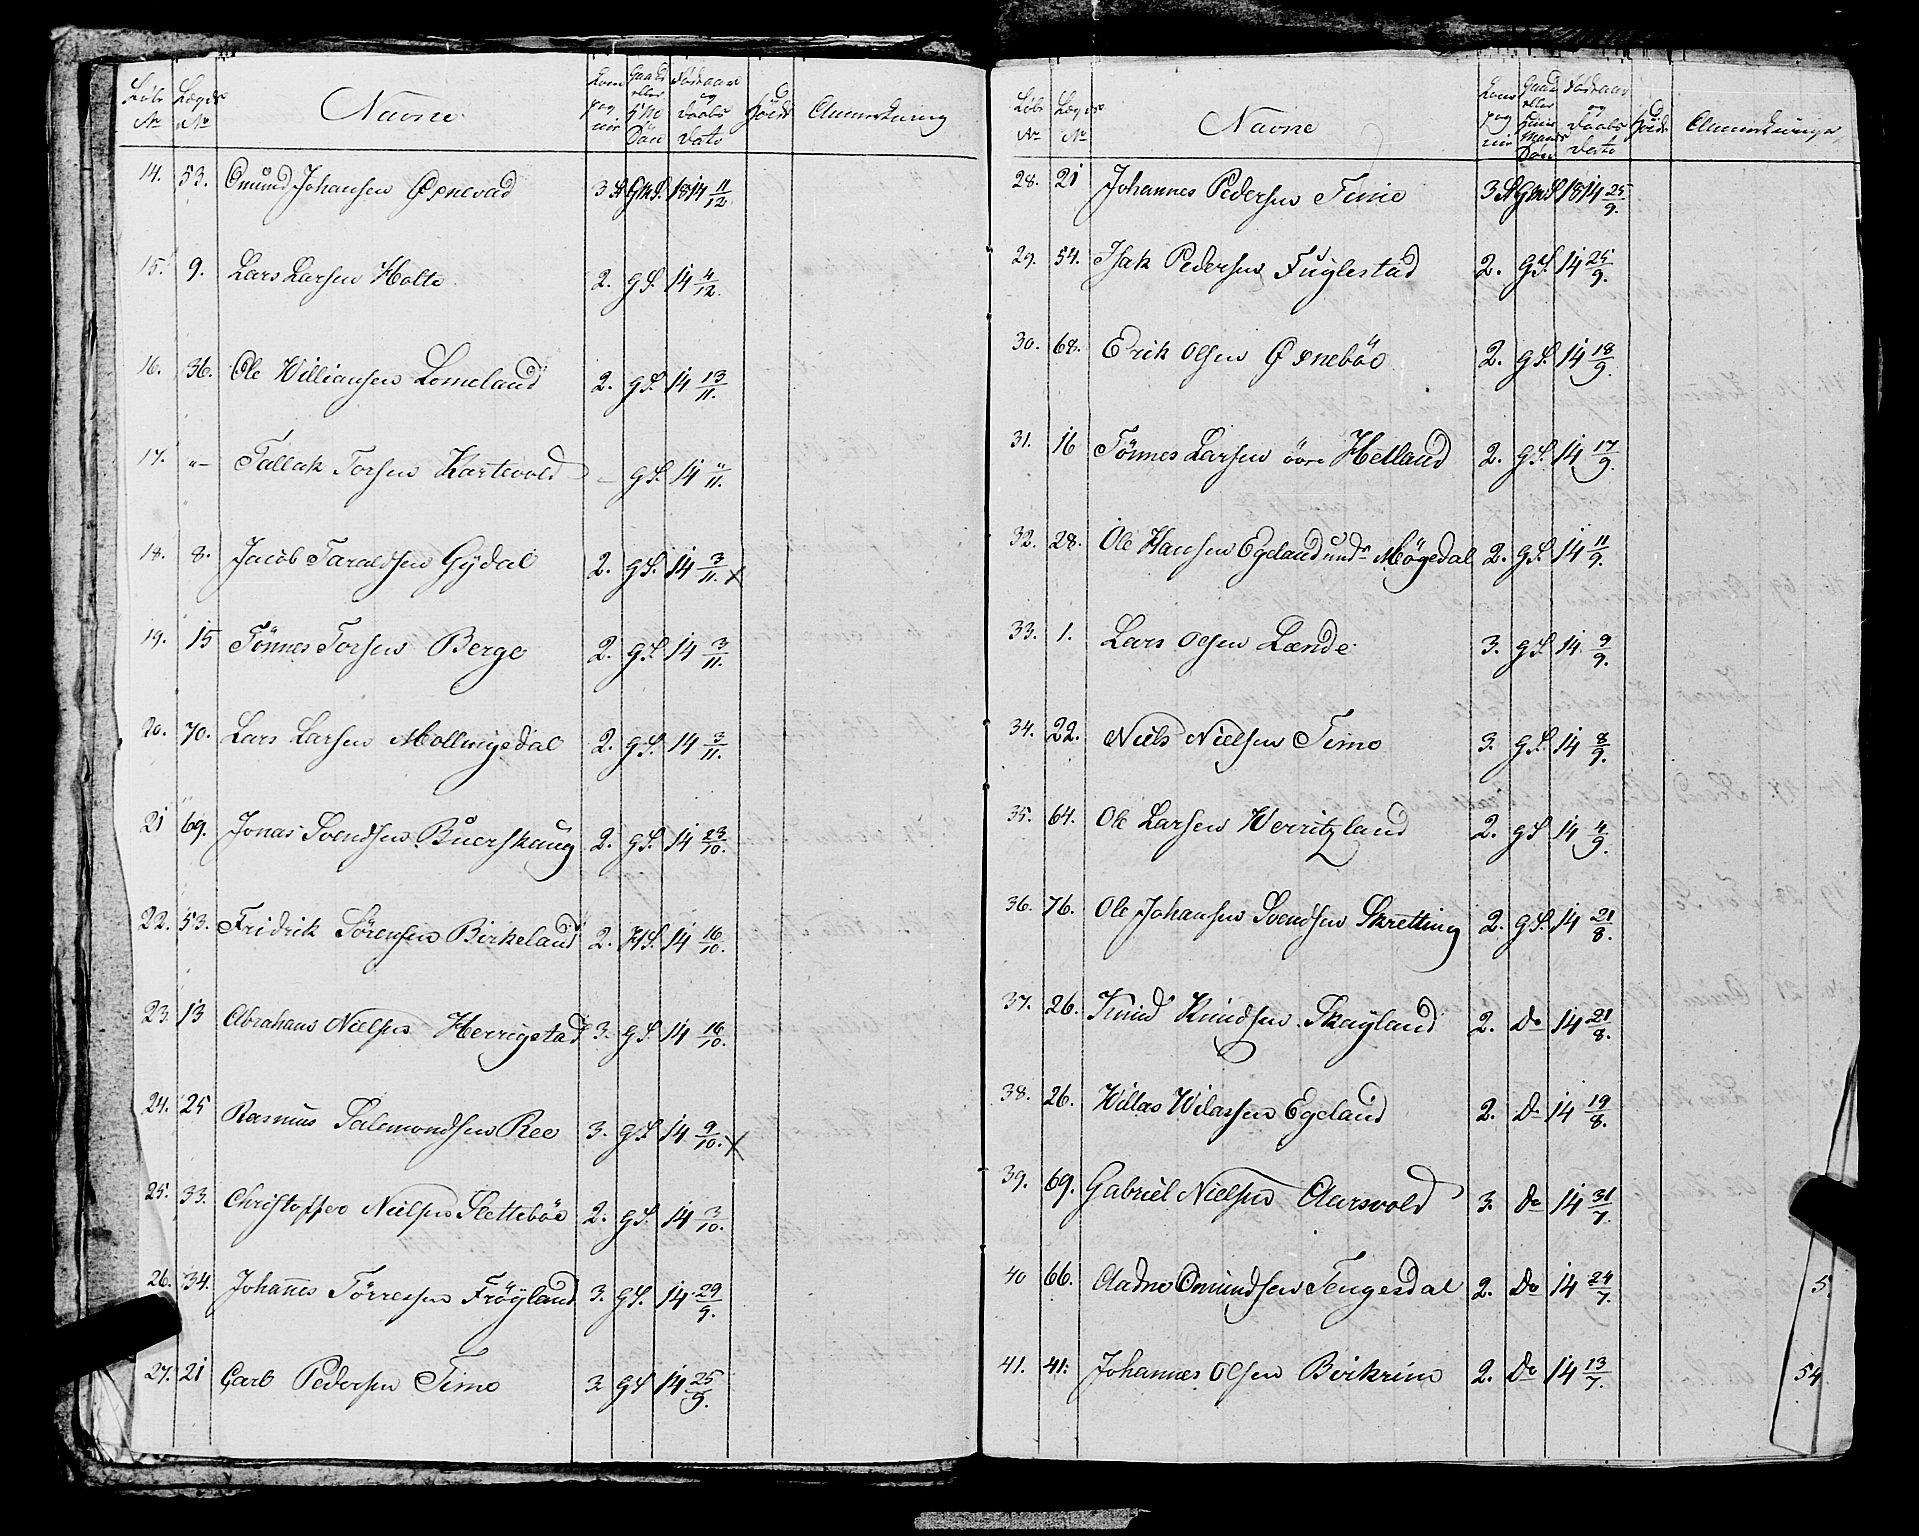 Løbe Nr Lægds Nr Navne Kompagnie Gaard eller H M Søn Fødeaar og Daabs Dato Höide Anmerkning
14. 53. Omund Johansen Øxnevad 3 St GMS. 1814 11/12
15. 9. Lars Larsen Holte 2. gS. 14 4/12.
16. 36. Ole Williansen Lomeland 2. gS. 14 13/11.
17. "– Tallak Torsen Kartevold – gS. 14 "/11.
18. 8. Jacob Taraldsen Gÿdal 2. gS. 14 3/11. x
19. 15 Tönnes Torsen Berge 2. gS. 14 3/11.
20. 70. Lars Larsen Mollingsdal 2. gS. 14 3/11.
21 69. Jonas Svendsen Buerskaug 2. gS. 14 23/10.
22. 53. Fridrik Sörensen Birkeland 2. HS. 14 16/10.
23. 13 Abraham Nielsen Herrigstad 3. gS. 14 16/10.
24. 25 Rasmus Salemondsen Ree 3. gS 14 9/10. x
25. 33. Christoffer Nielsen Sletteböe 2. gS. 14 3/10.
26. 34. Johannes Törresen Fröÿland 3. gS. 14 29/9.
27. 21 Carl Pedersen Time 3 gS 14 25/9.
Løbe Nr Lægds Nr Navne Kompagnie Gaard eller Huusmands Søn Fødeaar og Daabs Dato Höide Anmerkninger
28. 21 Johannes Pedersen Time 3 St GMS 1814 25/9.
29. 54. Isak Pedersen Fuglestad 2. gS. 14 25/9.
30. 68. Erik Olsen Øxneböe 2. gS. 14 18/9.
31. 16 Tönnes Larsen övre Helland 2. gS. 14 17/9.
32. 28. Ole Hansen Egeland undr Mögedal 2. gS. 14 11/9.
33. 1. Lars Olsen Lænde 3. gS. 14 9/9.
34. 22. Niels Nielsen Time 3. gS. 14 8/9.
35. 64. Ole Larsen Werritzland 2. gS 14 4/9.
36. 76. Ole Johansen Svendsen Skretting 2. gS. 14 21/8.
37. 26. Knud Knudsen Skaÿland 2. Do 14 21/8.
38. 26. Willas Wilassen Egeland 2. Do 14 19/8.
39. 69. Gabriel Nielsen Aarsvold 3. Do 14 31/7.
40 66. Aadne Omundsen Tengesdal 2. Do 14 24/7. 5.
41. 41. Johannes Olsen Birkrim 2. Do 14 13/7. 54